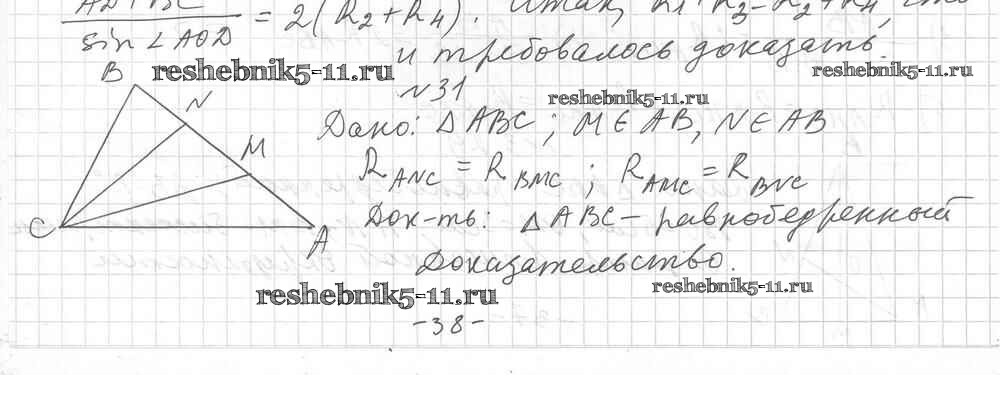 AD + BC
sin ∠AOD = 2(R₂+R₄). Итак, R₁+R₃=R₂+R₄, что
и требовалось доказать.
B reshebnik5-11.ru reshebnik5-11.ru
N №31 reshebnik5-11.ru
Дано: △ABC; M∈AB, N∈AB
M
R_ANC = R_BMC; R_AMC = R_BNC
C A Док-ть: △ABC – равнобедренный
Доказательство.
reshebnik5-11.ru reshebnik5-11.ru
-38-